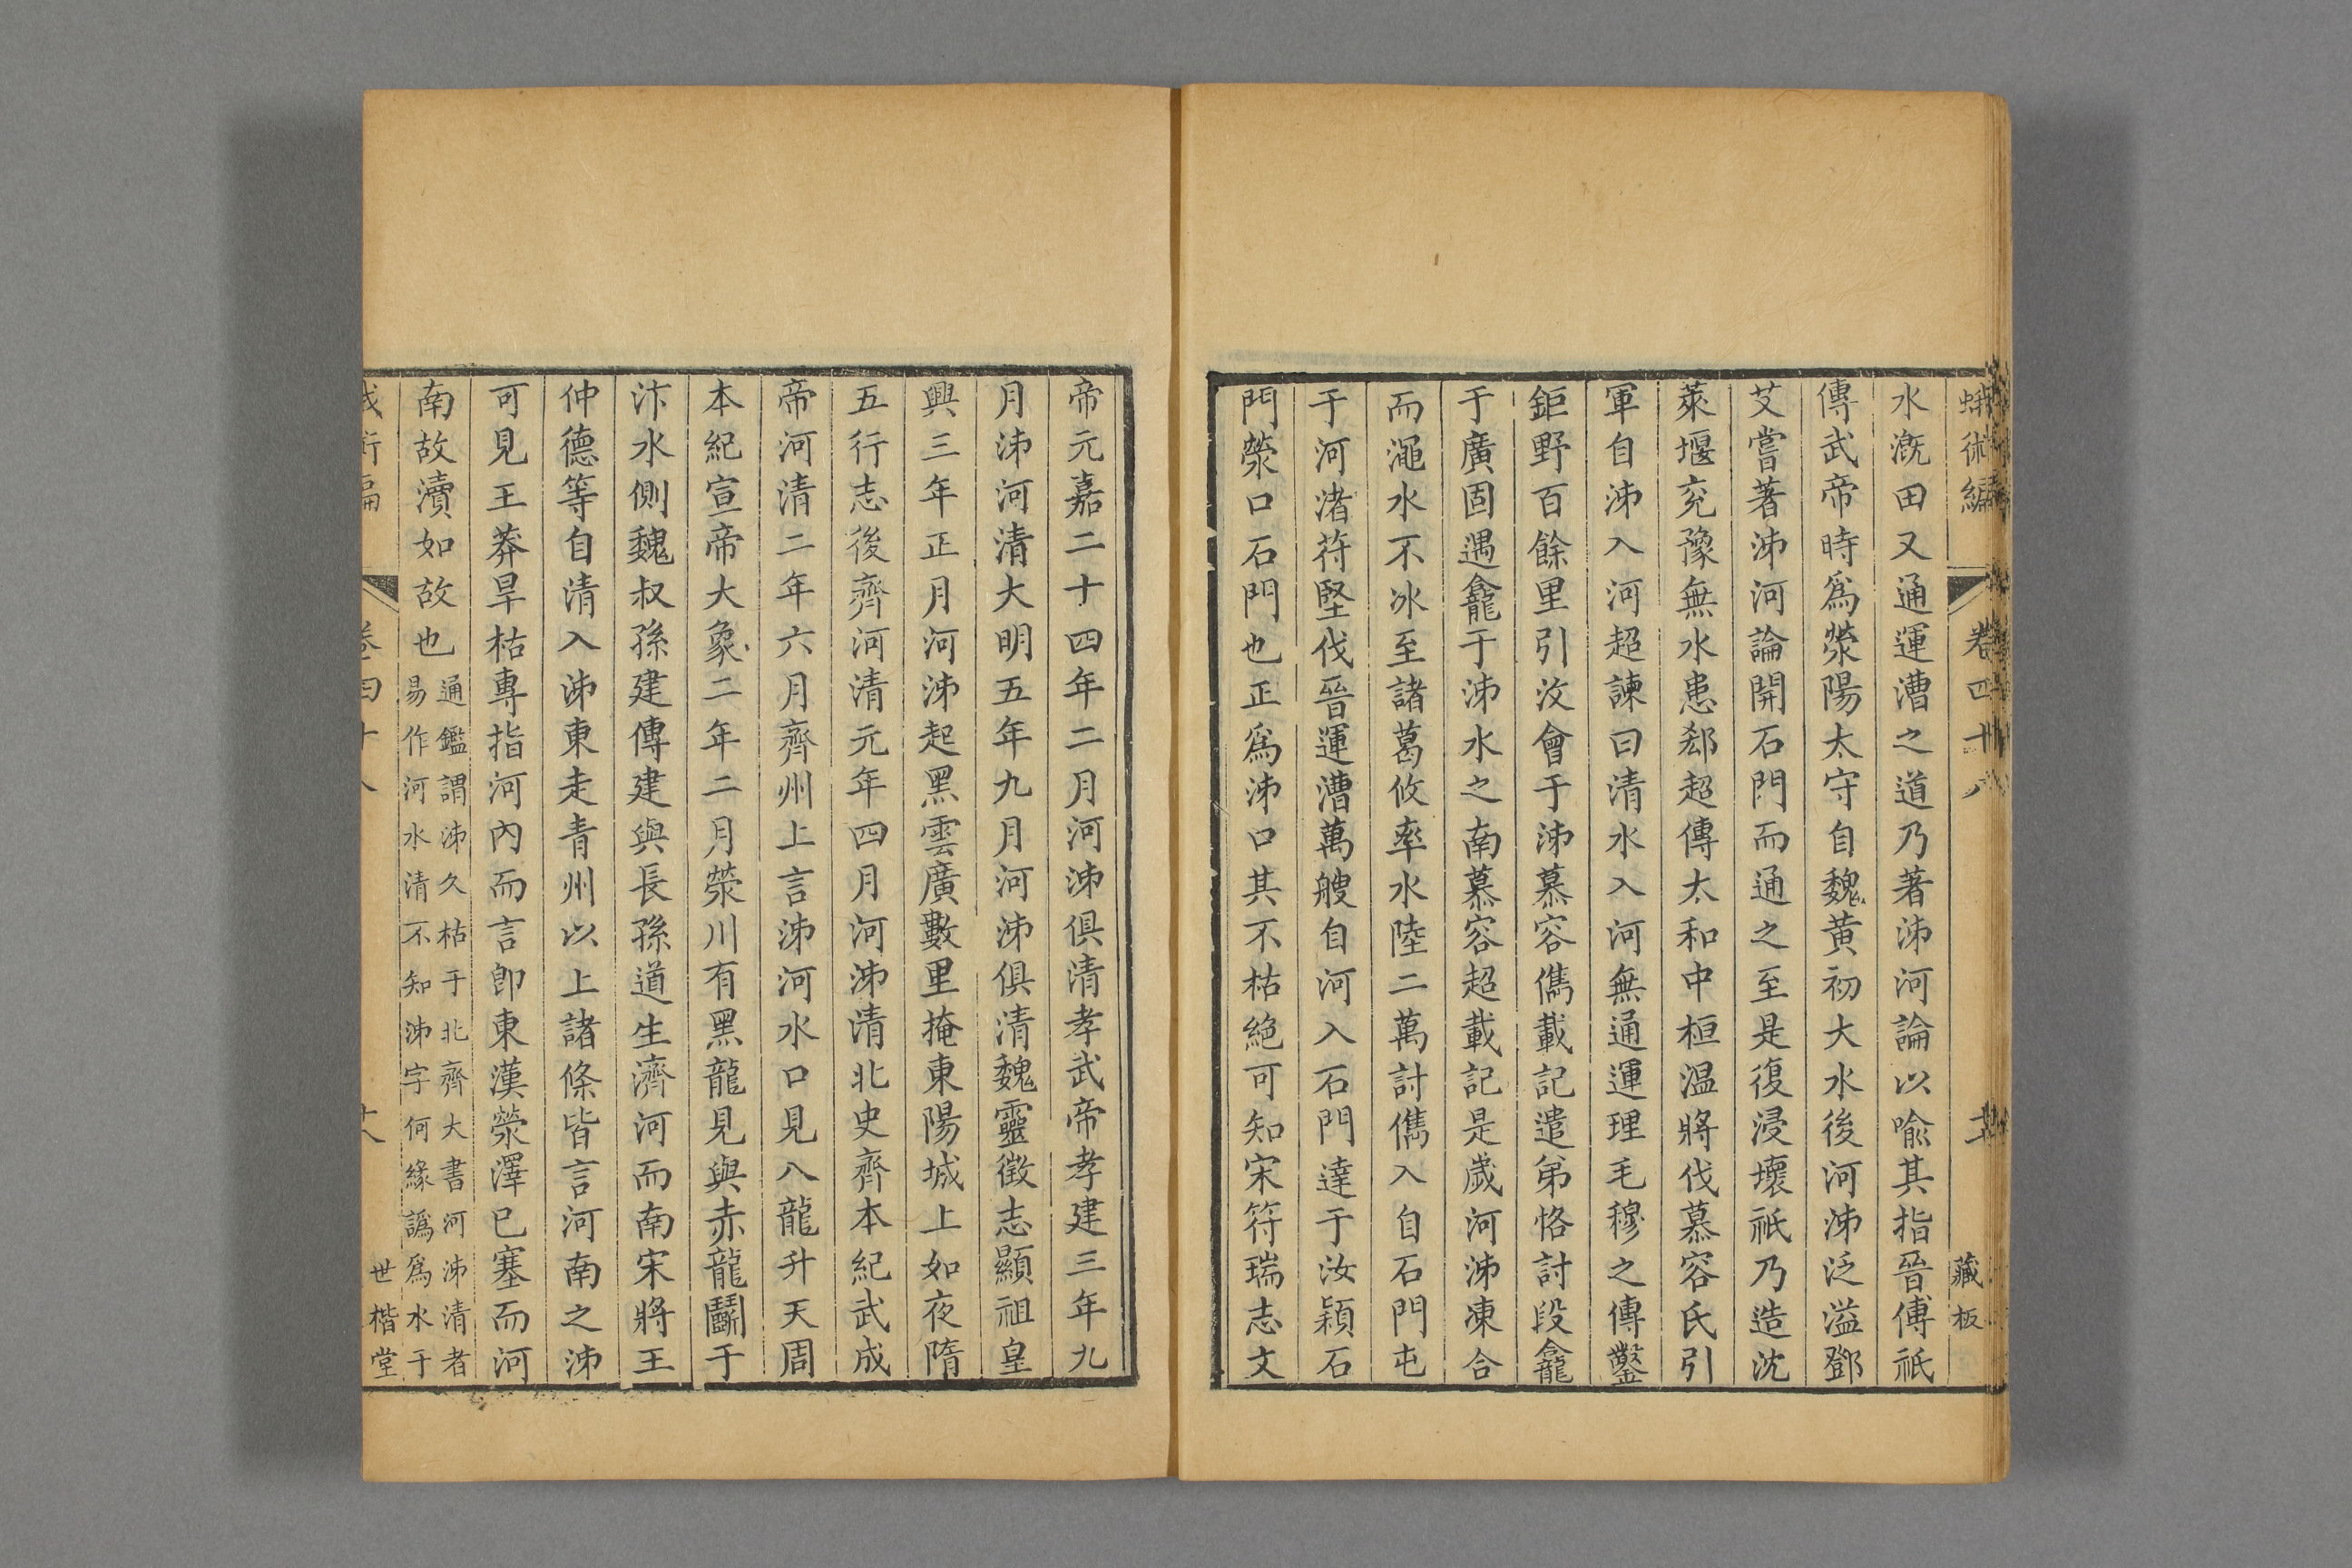 蛾術編 卷四十八 藏板
水漑田又通運漕之道乃著泲河論以喩其指晉傅祗
傳武帝時爲滎陽太守自魏黄初大水後河泲泛溢鄧
艾嘗著泲河論開石門而通之至是復浸壞祗乃造沈
萊堰兖豫無水患郄超傳太和中桓温將伐慕容氏引
軍自泲入河超諫曰清水入河無通運理毛穆之傳鑿
鉅野百餘里引汶會于泲慕容儁載記遣弟恪討段龕
于廣固遇龕于泲水之南慕容超載記是歲河泲凍合
而澠水不冰至諸葛攸率水陸二萬討儁入自石門屯
于河渚苻堅伐晉運漕萬艘自河入石門達于汝潁石
門滎口石門也正爲泲口其不枯絕可知宋符瑞志文
帝元嘉二十四年二月河泲俱清孝武帝孝建三年九
月泲河清大明五年九月河泲俱清魏靈徵志顯祖皇
興三年正月河泲起黑雲廣數里掩東陽城上如夜隋
五行志後齊河清元年四月河泲清北史齊本紀武成
帝河清二年六月齊州上言泲河水口見八龍升天周
本紀宣帝大象二年二月滎川有黑龍見與赤龍鬭于
汴水側魏叔孫建傳建與長孫道生濟河而南宋將王
仲德等自清入泲東走青州以上諸條皆言河南之泲
可見王莽旱枯專指河內而言卽東漢滎澤已塞而河
南故瀆如故也
通鑑謂泲久枯于北齊大書河泲清者
易作河水清不知泲字何緣譌爲水于
世楷堂